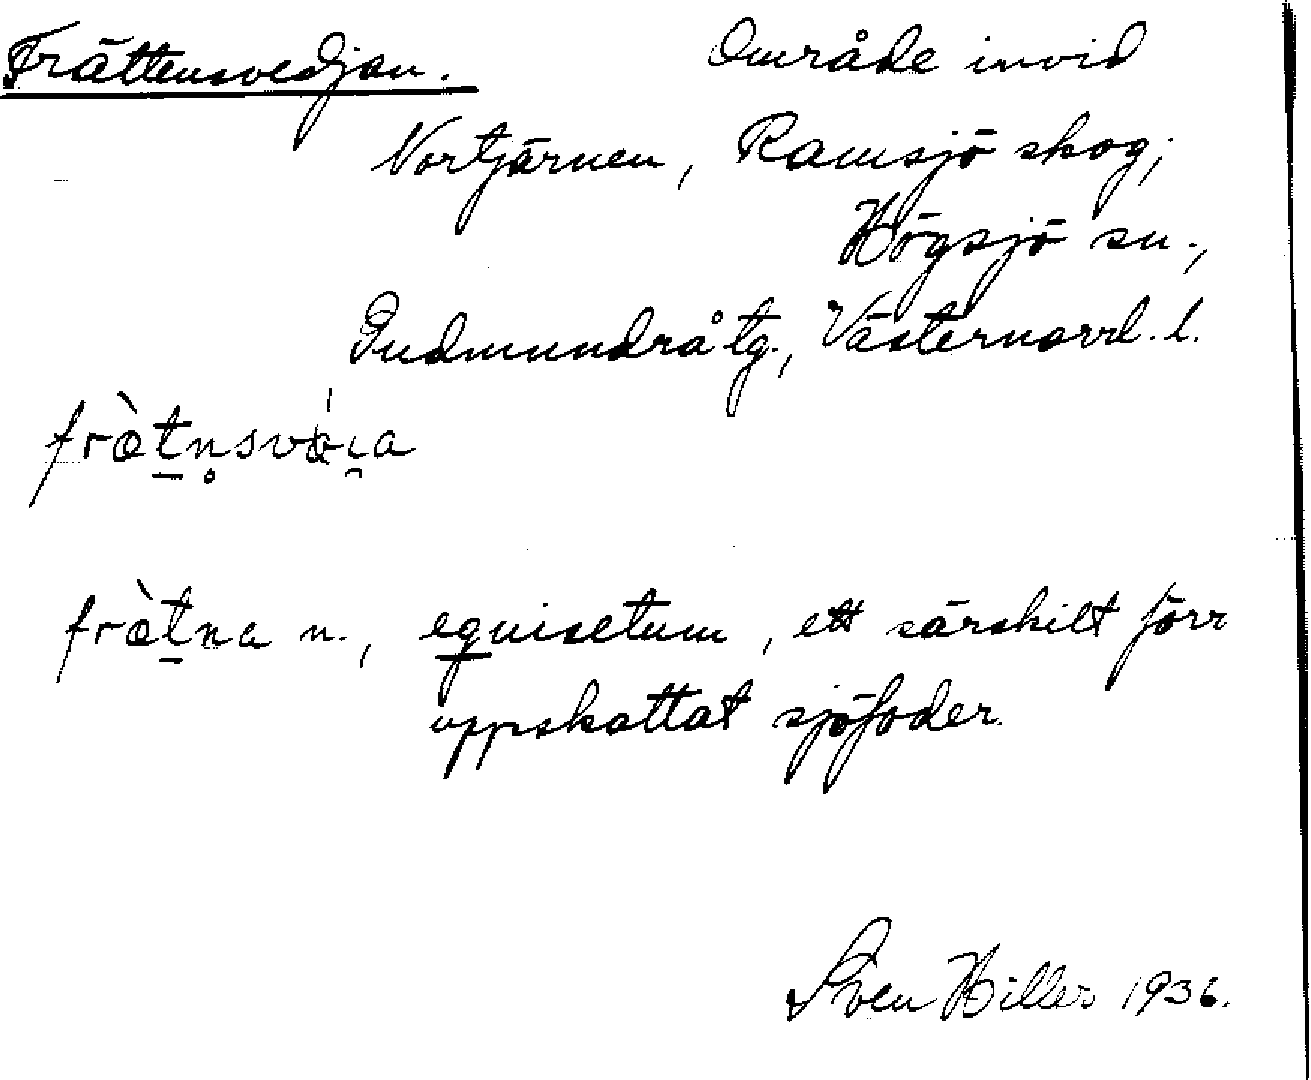 Frättensvedjan. Område invid
Nortjärnen, Ramsjö skog,
Högsjö sn.,
Gudmundrå tg., Västernorrl. l.
fræ̀tn̥svǽi̯a
fræ̀tna n., equisetum, ett särskilt förr
uppskattat sjöfoder.
Sven Hiller 1936.